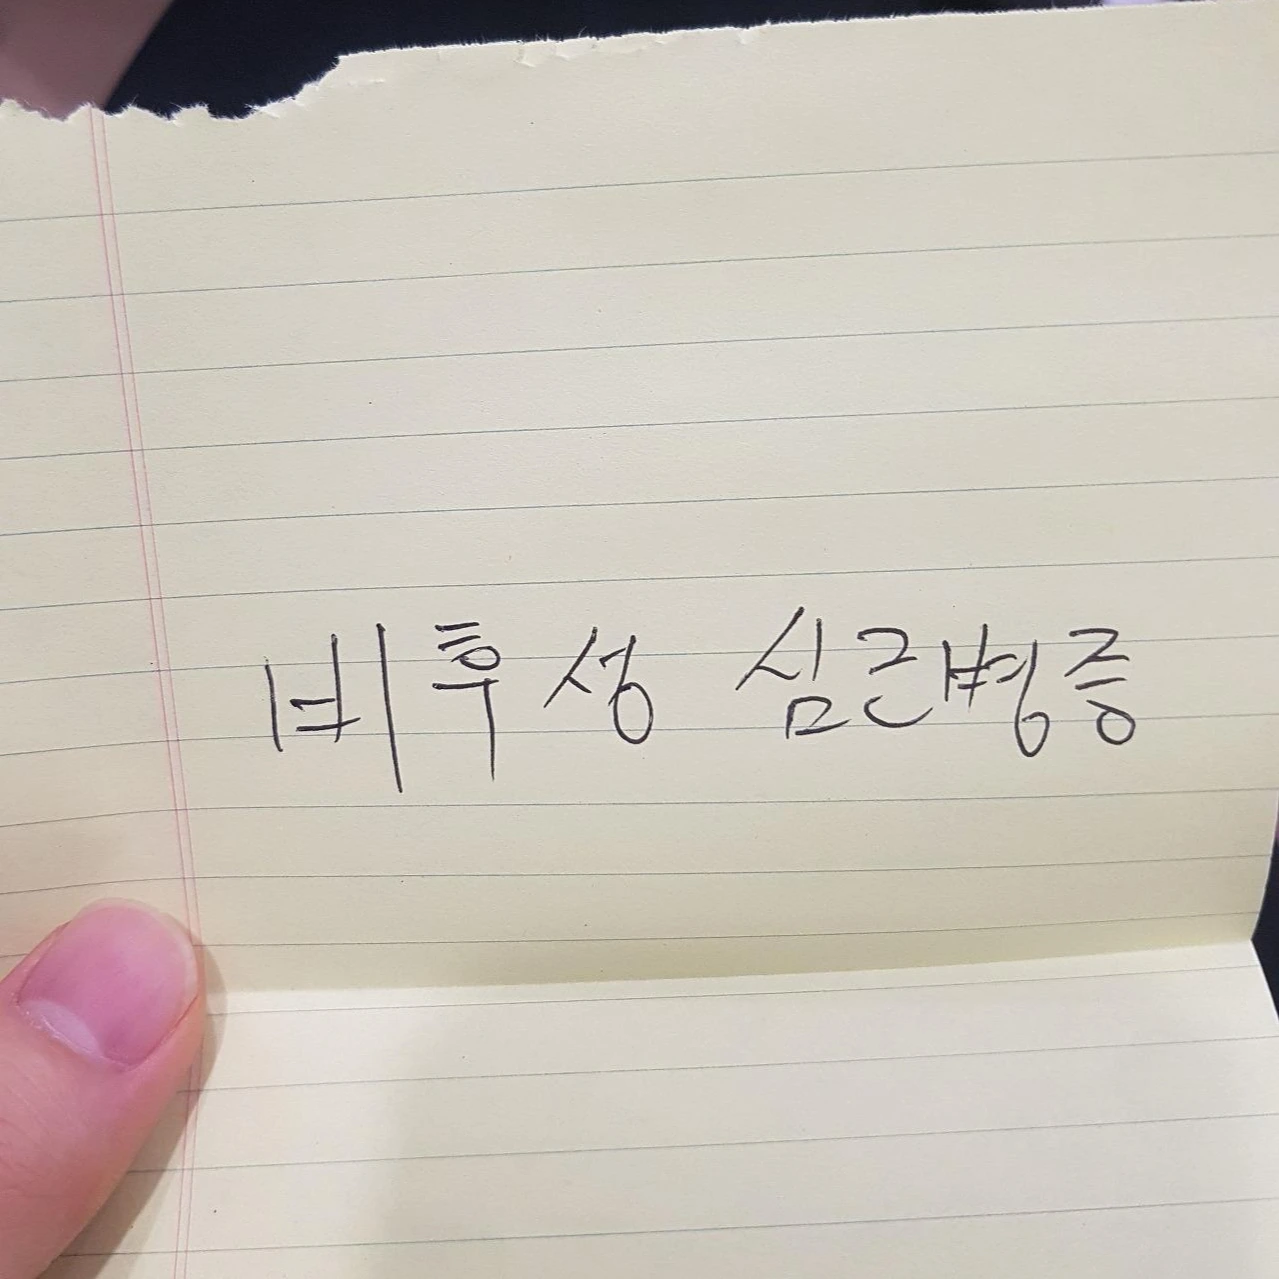 비후성 심근병증